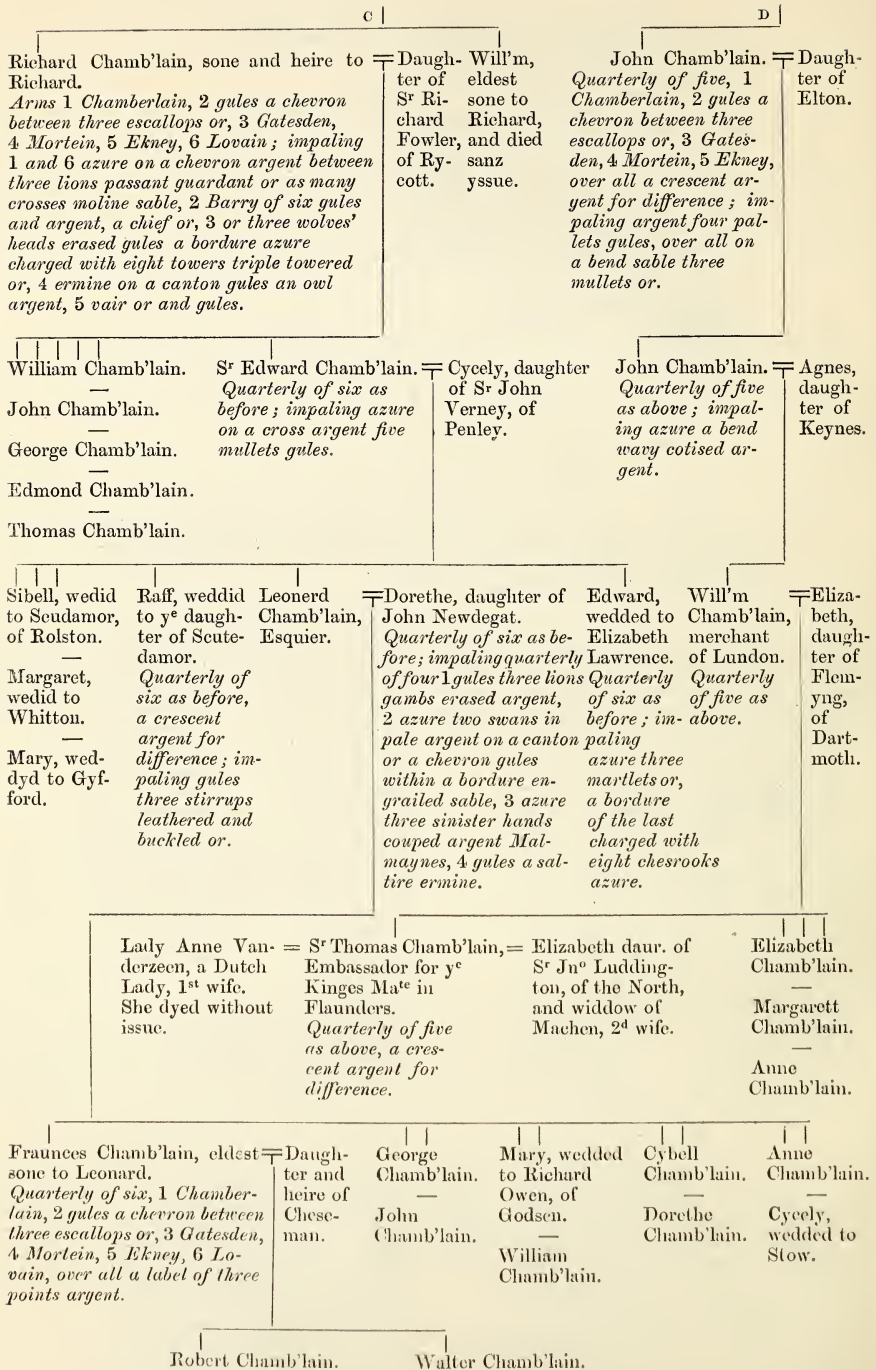 C
D
Richard Chamb'lain, sone and heire to
Richard.
Arms 1 Chamberlain, 2 gules a chevron
between three escallops or, 3 Gatesden,
4 Mortein, 5 Ekney, 6 Lovain; impaling
1 and 6 azure on a chevron argent between
three lions passant guardant or as many
crosses moline sable, 2 Barry of six gules
and argent, a chief or, 3 or three wolves'
heads erased gules a bordure azure
charged with eight towers triple towered
or, 4 ermine on a canton gules an owl
argent, 5 vair or and gules.
Daugh-
ter of
Sr Ri-
chard
Fowler,
of Ry-
cott.
Will'm,
eldest
sone to
Richard,
and died
sanz
yssue.
John Chamb'lain.
Quarterly of five, 1
Chamberlain, 2 gules a
chevron between three
escallops or, 3 Gates-
den, 4 Mortein, 5 Ekney,
over all a crescent ar-
gent for difference; im-
paling argent four pal-
lets gules, over all on
a bend sable three
mullets or.
Daugh-
ter of
Elton.
William Chamb'lain.
—
John Chamb'lain.
—
George Chamb'lain.
—
Edmond Chamb'lain.
—
Thomas Chamb'lain.
Sr Edward Chamb'lain.
Quarterly of six as
before; impaling azure
on a cross argent five
mullets gules.
Cycely, daughter
of Sr John
Verney, of
Penley.
John Chamb'lain.
Quarterly of five
as above; impal-
ing azure a bend
wavy cotised ar-
gent.
Agnes,
daugh-
ter of
Keynes.
Sibell, wedid
to Scudamor,
of Rolston.
—
Margaret,
wedid to
Whitton.
—
Mary, wed-
dyd to Gyf-
ford.
Raff, weddid
to ye daugh-
ter of Scute-
damor.
Quarterly of
six as before,
a crescent
argent for
difference; im-
paling gules
three stirrups
leathered and
buckled or.
Leonerd
Chamb'lain,
Esquier.
Dorethe, daughter of
John Newdegat.
Quarterly of six as be-
fore; impaling quarterly
of four 1 gules three lions
gambs erased argent,
2 azure two swans in
pale argent on a canton
or a chevron gules
within a bordure en-
grailed sable, 3 azure
three sinister hands
couped argent Mal-
maynes, 4 gules a sal-
tire ermine.
Edward,
wedded to
Elizabeth
Lawrence.
Quarterly
of six as
before; im-
paling
azure three
martlets or,
a bordure
of the last
charged with
eight chesrooks
azure.
Will'm
Chamb'lain,
merchant
of Lundon.
Quarterly
of five as
above.
Eliza-
beth,
daugh-
ter of
Flem-
yng,
of
Dart-
moth.
Lady Anne Van-
derzeen, a Dutch
Lady, 1st wife.
She dyed without
issue.
=
Sr Thomas Chamb'lain,
Embassador for ye
Kinges Mate in
Flaunders.
Quarterly of five
as above, a cres-
cent argent for
difference.
=
Elizabeth daur. of
Sr Jno Ludding-
ton, of the North,
and widdow of
Machen, 2d wife.
Elizabeth
Chamb'lain.
—
Margarett
Chamb'lain.
—
Anne
Chamb'lain.
Fraunces Chamb'lain, eldest
sone to Leonard.
Quarterly of six, 1 Chamber-
lain, 2 gules a chevron between
three escallops or, 3 Gatesden,
4 Mortein, 5 Ekney, 6 Lo-
vain, over all a label of three
points argent.
Daugh-
ter and
heire of
Chese-
man.
George
Chamb'lain.
—
John
Chamb'lain.
Mary, wedded
to Richard
Owen, of
Godsen.
—
William
Chamb'lain.
Cybell
Chamb'lain.
—
Dorethe
Chamb'lain.
Anne
Chamb'lain.
—
Cycely,
wedded to
Stow.
Robert Chamb'lain.
Walter Chamb'lain.